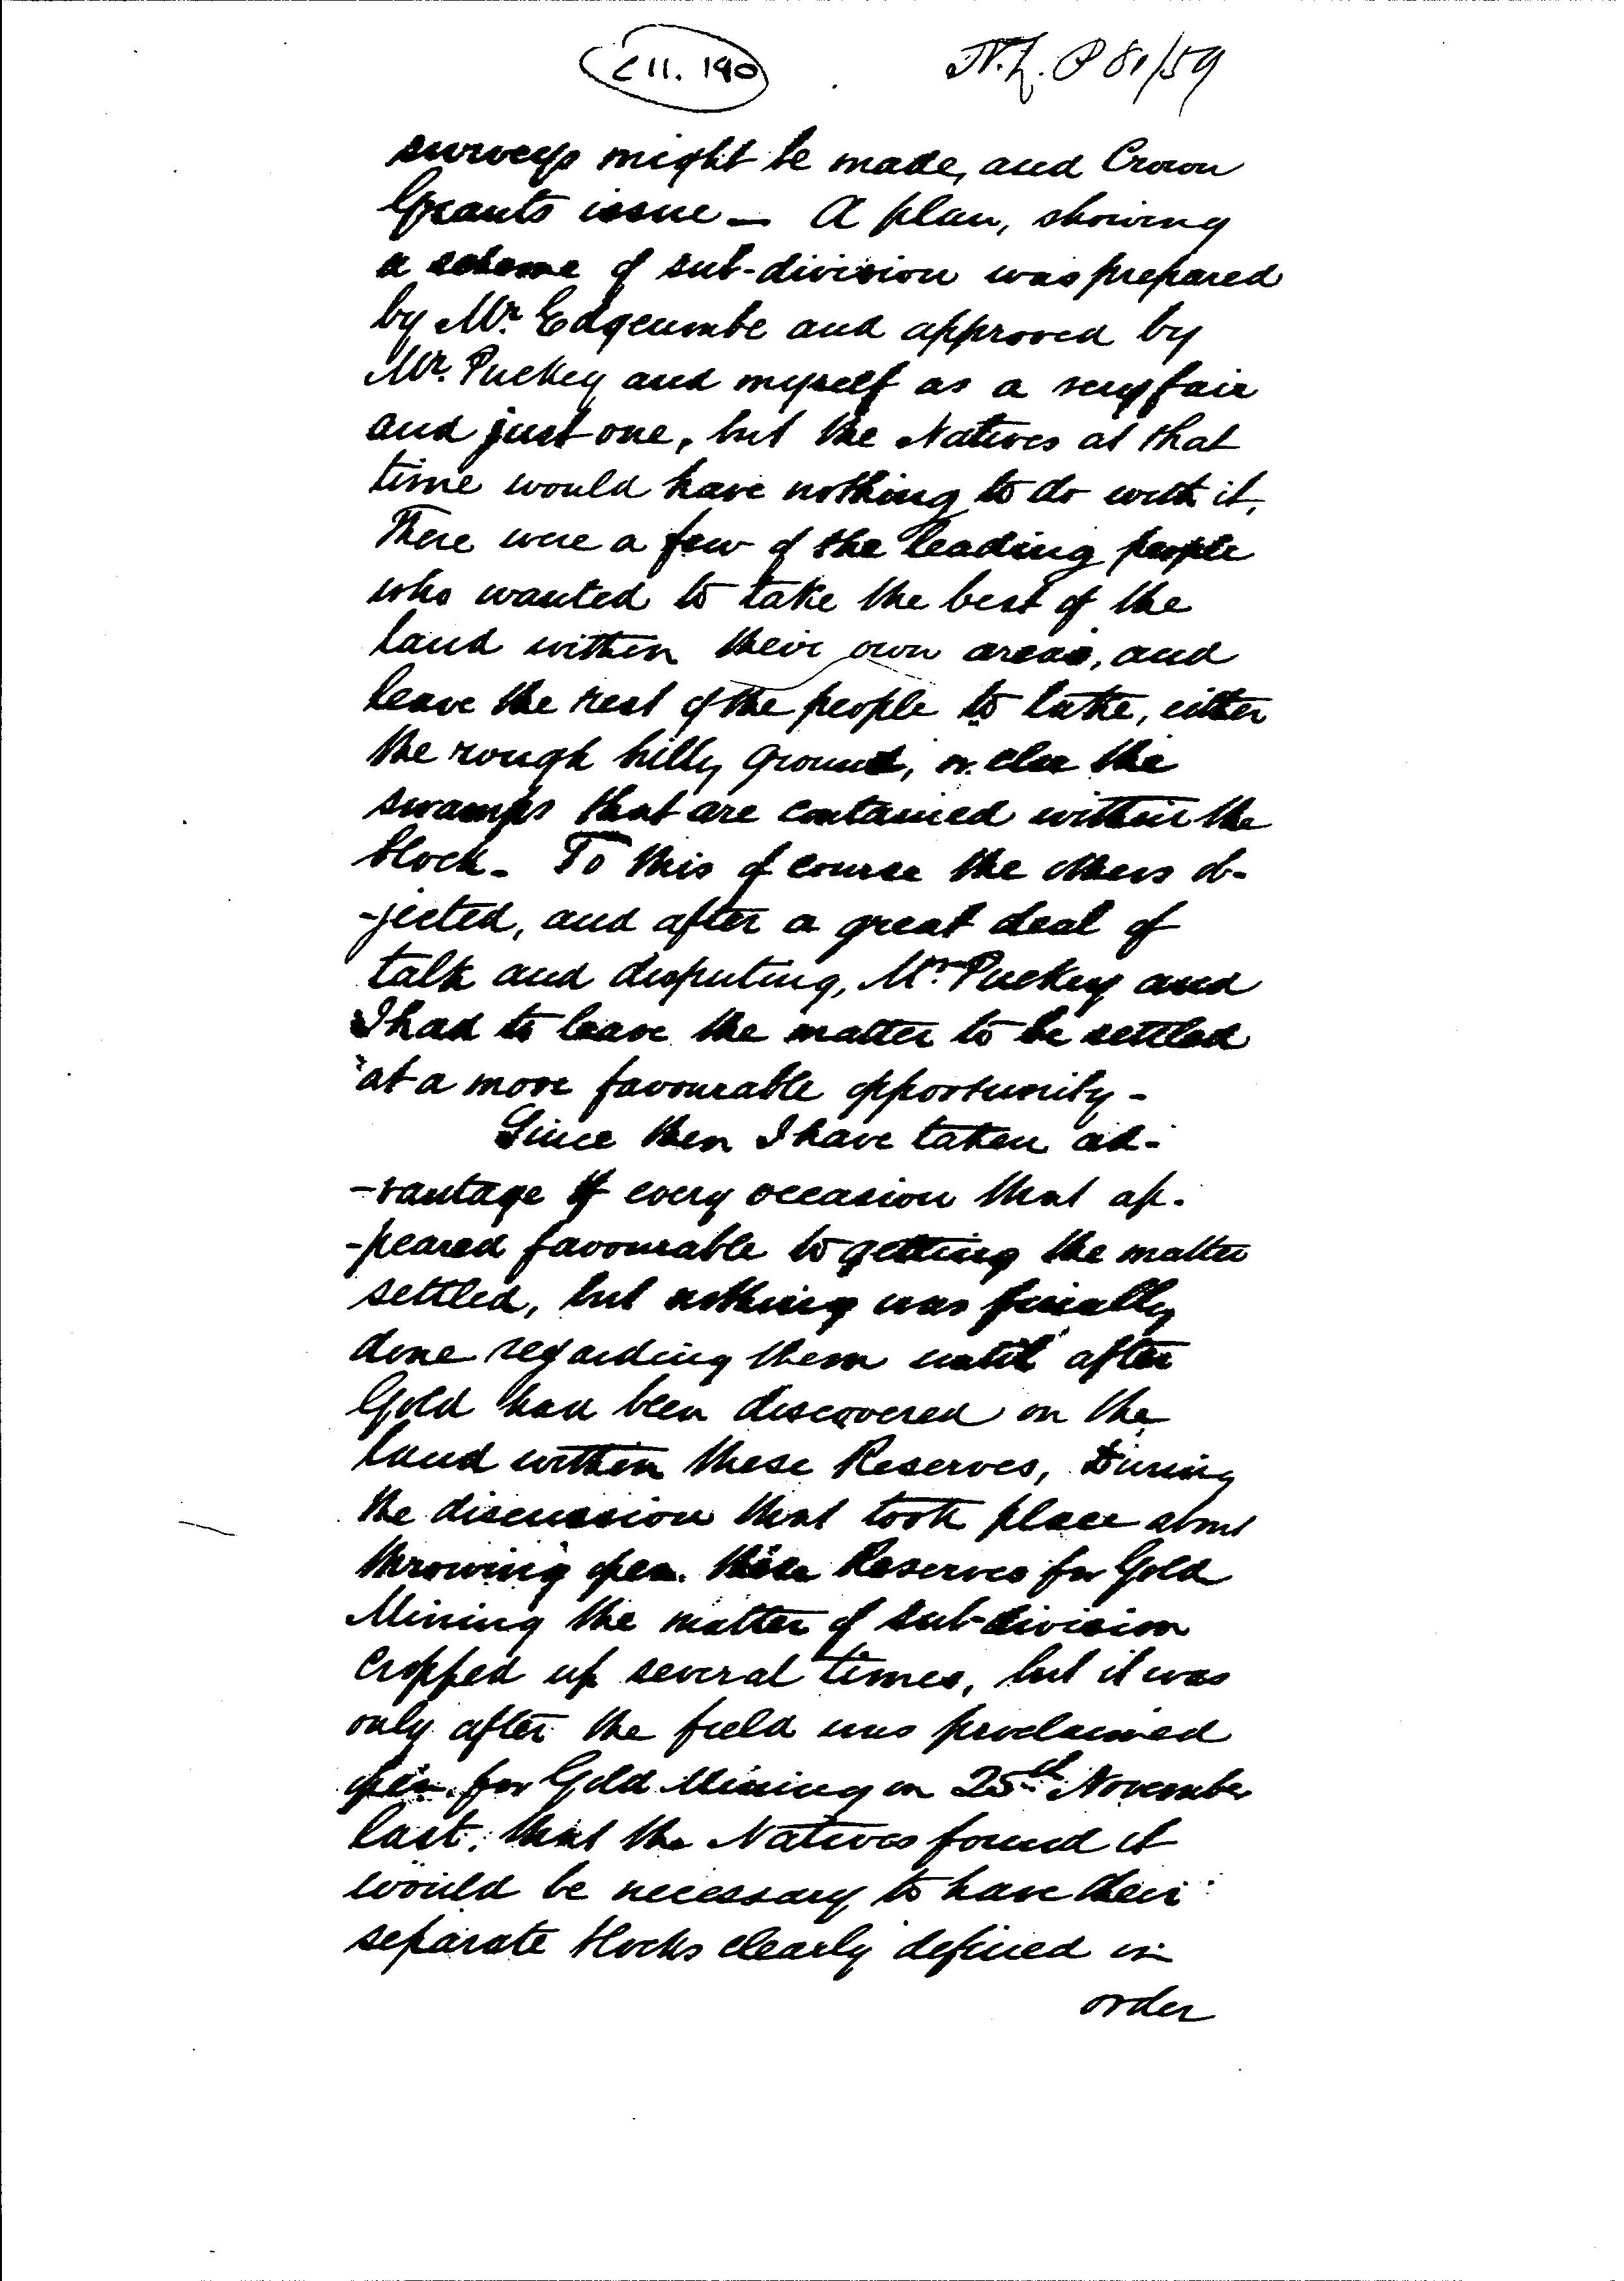 C11. 190
N.L.P 81/59
surveys might be made, and Crown
Grants issue – A plan, showing
a scheme of sub-division was prepared
by Mr. Edgcumbe and approved by
Mr. Puckey and myself as a very fair
and just one, but the Natives at that
time would have nothing to do with it,
There were a few of the leading people
who wanted to take the best of the
land within their own areas, and
leave the rest of the people to take, either
the rough hilly ground, or else the
swamps that are contained within the
block – To this of course the others ob-
-jected, and after a great deal of
talk and disputing, Mr. Puckey and
I had to leave the matter to be settled
at a more favourable opportunity –
Since then I have taken ad-
-vantage of every occasion that ap-
-peared favourable to getting the matter
settled, but nothing was finally
done regarding them until after
Gold had been discovered on the
land within these Reserves, During
the discussion that took place about
throwing open these Reserves for Gold
Mining the matter of sub-division
cropped up several times, but it was
only after the field was proclaimed
open for Gold Mining on 25th November
last, that the Natives found it
would be necessary to have their
separate blocks clearly defined in
order